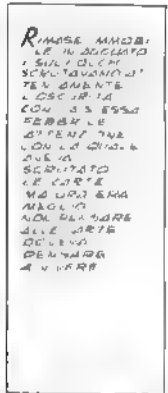 RIMASE IMMOBI
LE IN AGGUATO
I SUOI OCCHI
SCRUTAVANO AT
TENTAMENTE
L'OSCURITA
CON LA STESSA
FEBBRILE
ATTENZIONE
CON LA QUALE
AVEVA
SCRUTATO
LE CARTE
MA ORA ERA
MEGLIO
NON PENSARE
ALLE CARTE
DOVEVA
PENSARE
A